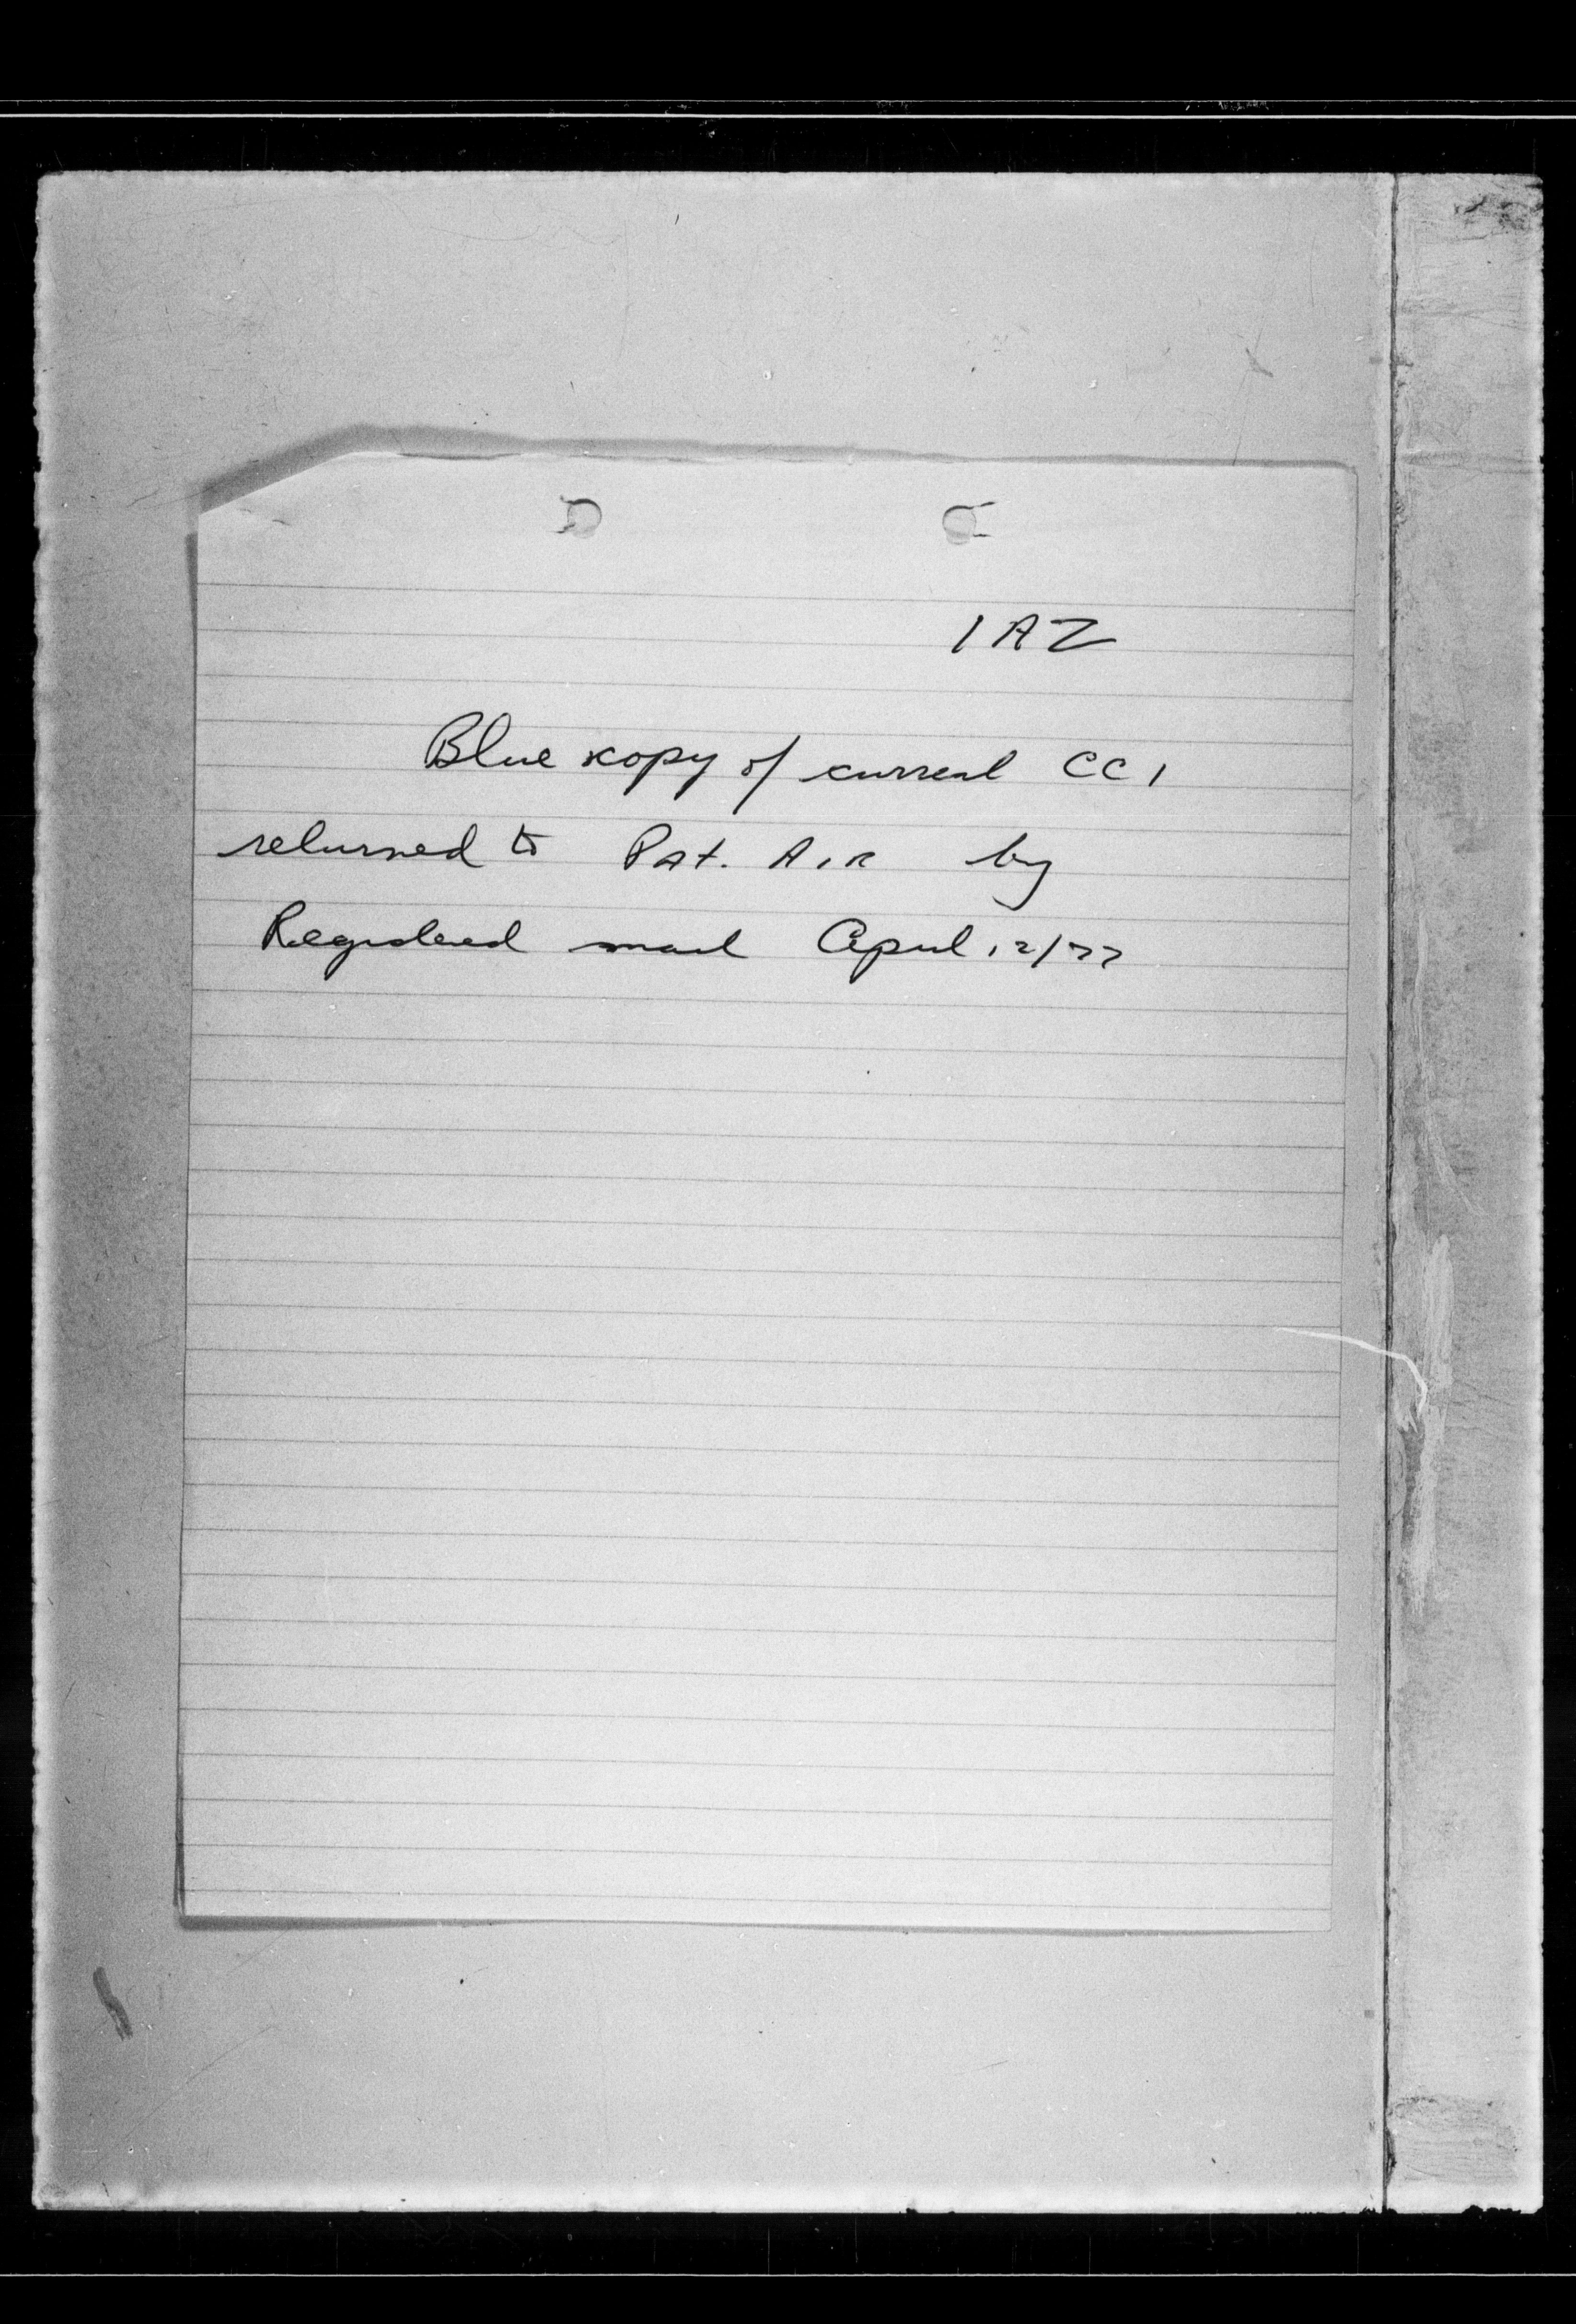 IAZ
Blue copy of current CCI
returned to Pat. Air by
Registered mail April 12/77